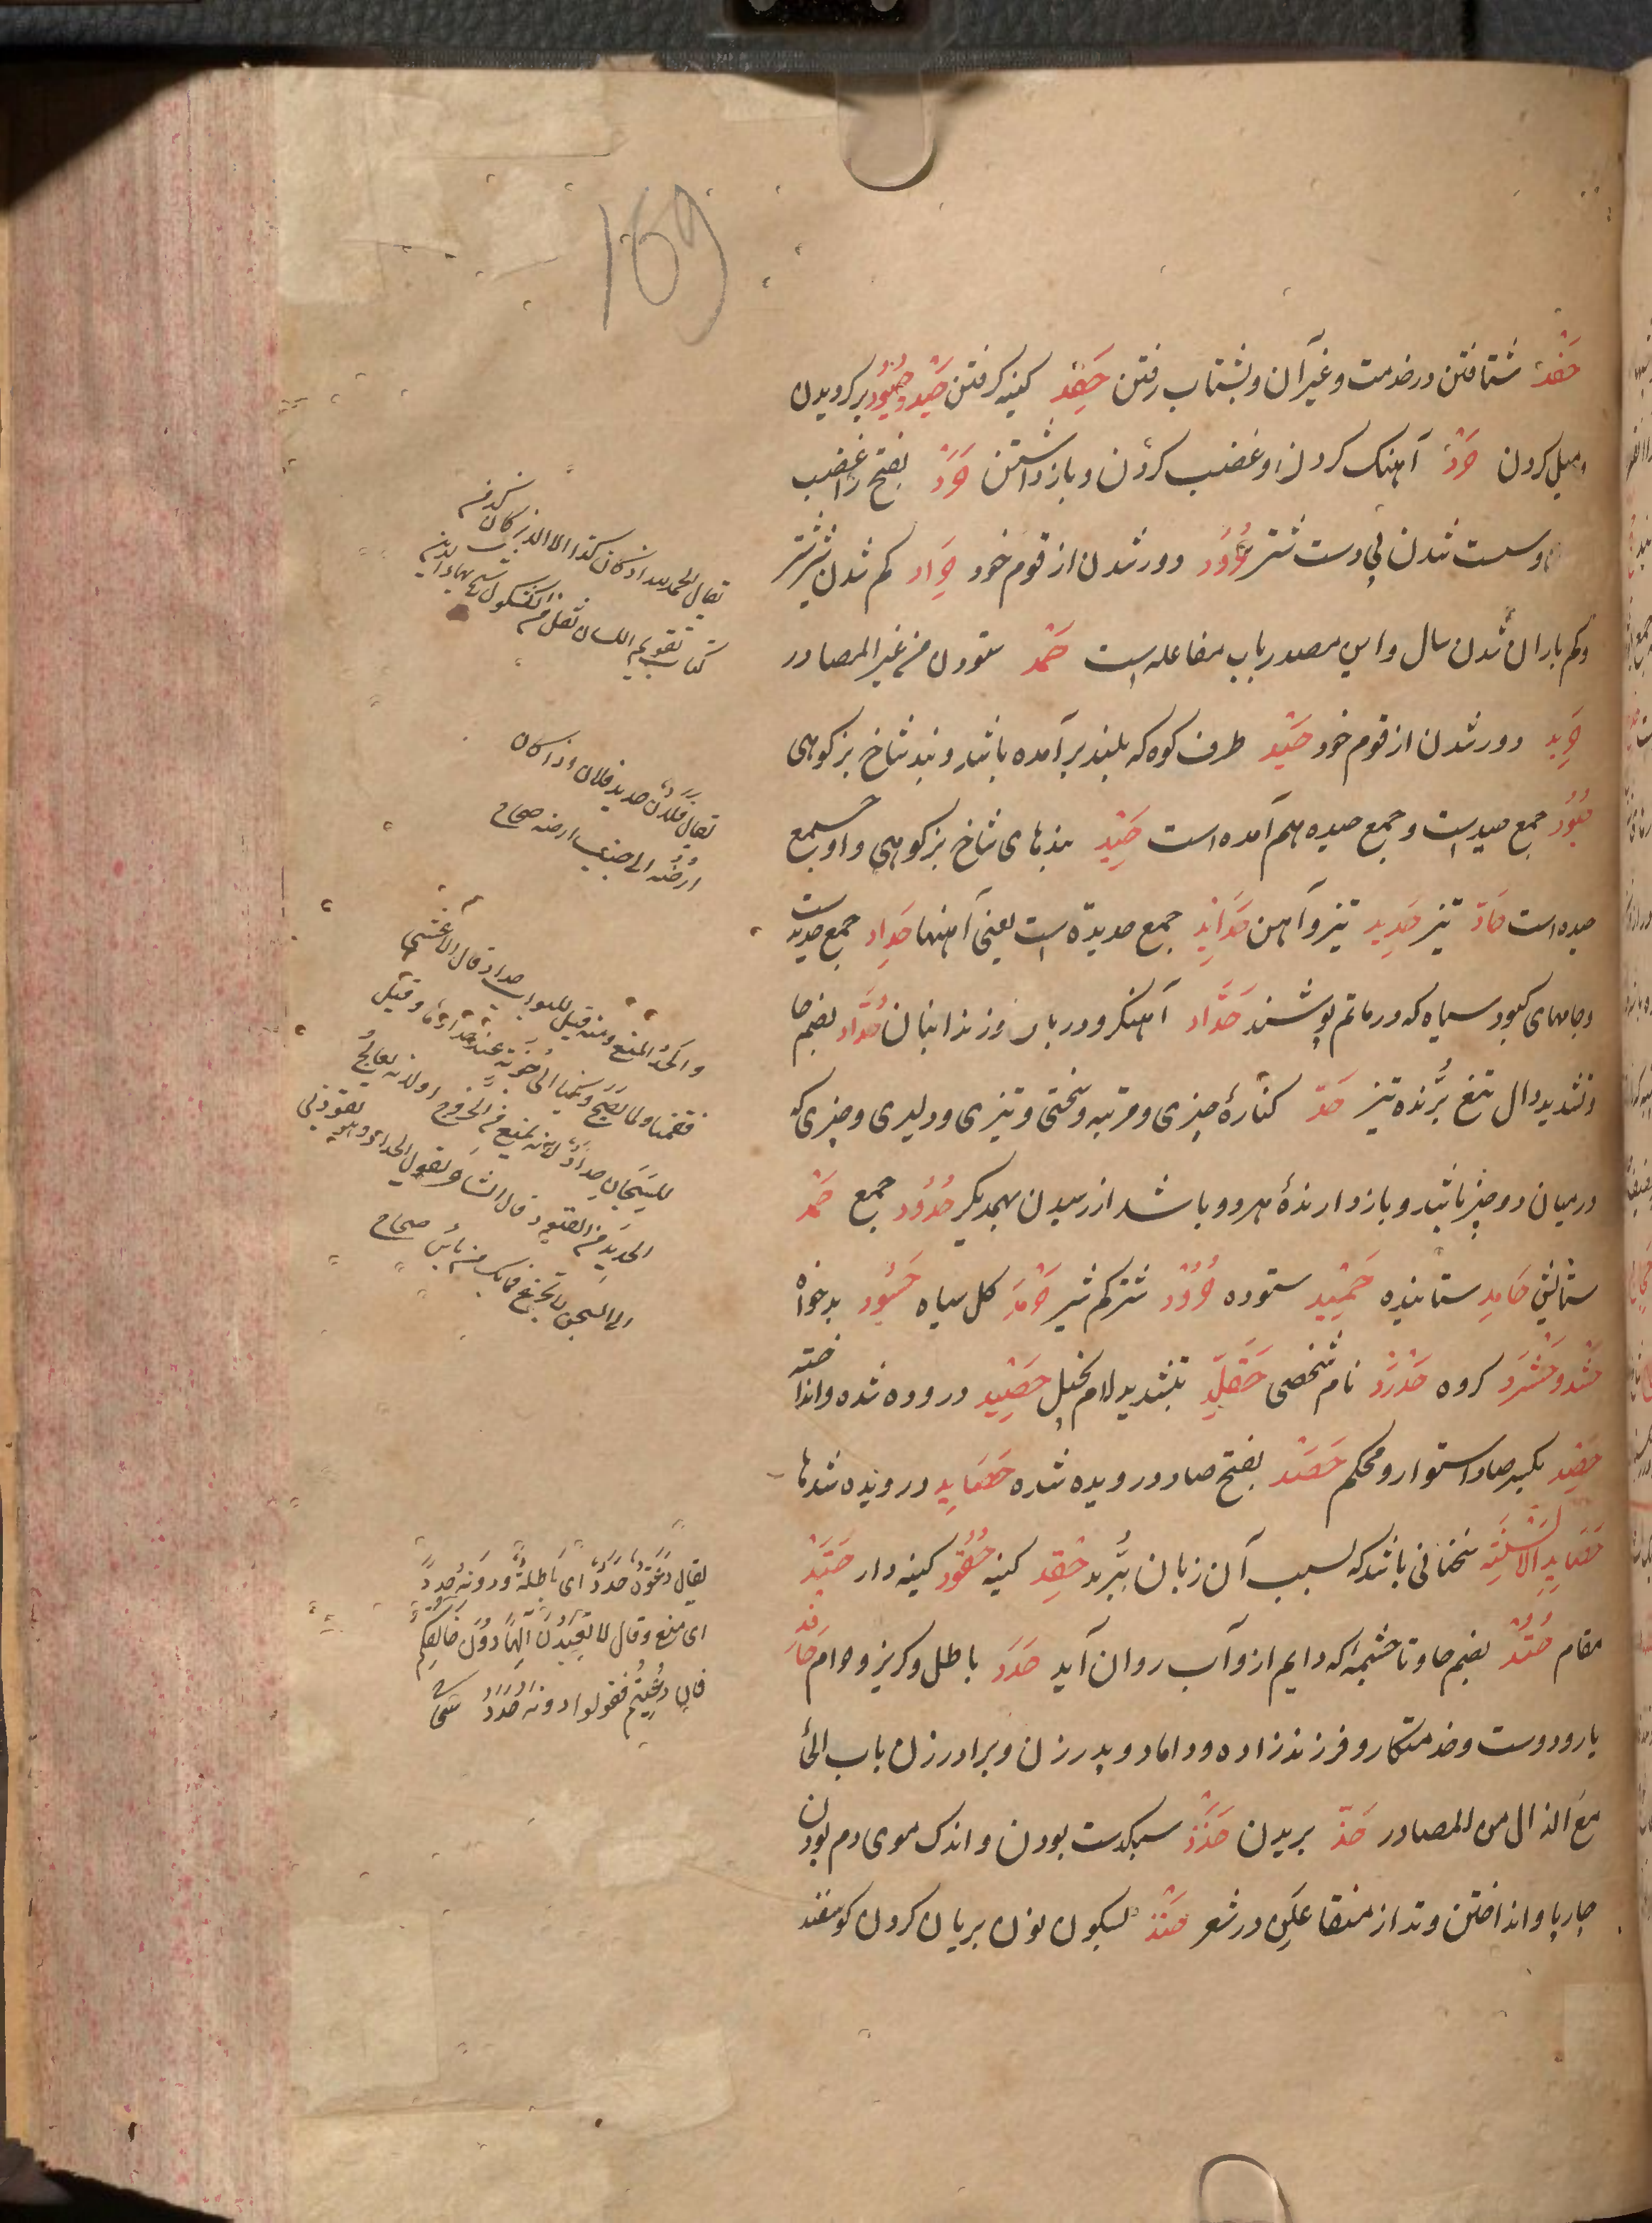 169
حَفْد شتافتن در خدمت و غیر آن و بشتاب رفتن حِقْد کینه گرفتن حَیْد و حُیُود برگردیدن
و میل کردن حَرْد آهنک کردن و غضب کردن و باز داشتن حَرَد بفتح را غضب
و سست شدن پی دست شتر حُرُود دور شدن از قوم خود حِرَاد کم شدن شیر شتر
و کم باران شدن سال و این مصدر باب مفاعله است حَمْد ستودن من غیر المصادر
حَرِید دور شدن از قوم خود حَیْد طرف کوه که بلند برآمده باشد و بند شاخ بز کوهی
حُیُود جمع حید است و جمع حیده هم آمده است حِیَد بندهای شاخ بز کوهی و او جمع
حیده است حَادّ تیز حَدِید تیز و آهن حَدَائِد جمع حدیدة است یعنی آهنها حِدَاد جمع حدید است
و جامهای کبود سیاه که در ماتم پوشند حَدَّاد آهنکر و دربان و زندانبان حُدَّاد بضم حا
و تشدید دال تیغ بُرّنده تیز حَدّ کنارهٔ چیزی و مرتبه و سختی و تیزی و دلیری و چیزی که
در میان دو چیز باشد و باز دارندهٔ هر دو باشد از رسیدن بهمدیکر حُدُود جمع حَمْد
ستایش حَامِد ستاینده حَمِید ستوده حَرُود شتر کم شیر حَرْمَد کل سیاه حَسُود بدخواه
حَشْد و حَشَد کروه حَدْرَد نام شخصی حَقَلَّد بتشدید لام بخیل حَصِید دروده شده و انداخته
حَصِد بکسر صاد استوار و محکم حَصَد بفتح صاد درویده شده حَصَایِد درویده شدها
حَصَایِد الاَلْسِنَة سخنانی باشد که بسبب آن زبان بُبُرند حِقْد کینه حَقُود کینه دار حَتِد
مقام حُتُد بضم حا و تا چشمه که دایم از و آب روان آید حَدَد باطل و کریز و حرام حَافِد
یار و دوست و خدمتکار و فرزند زاده و داماد و پدر زن و برادر زن باب الحاء
مع الذال من المصادر حَذّ بریدن حَذَذ سبکدست بودن و اندک موی دم بودن
چارپا و انداختن وتد از متفاعلن در شعر حَنْذ بسکون نون بریان کردن کوسفند
کتاب تقویم اللسان نقل من الکشکول
و الحدّ المنع و منه قیل للبواب حداد قال الاعشی
فقمنا و لما یصح دیکنا الی جونة عند حدادها و قیل
للسجان حداد لانه یمنع من الخروج او لانه یعالج
الحدید من القیود قال الشاعر یقول الحداد و هو یقودنی
الی السجن لا تجزع فما بک من باس صحاح
یقال دَعْوَةٌ حَدَدٌ ای باطلة و دونه حَدَدٌ
ای منع و قال لا تعبدون الهًا دون خالقکم
فان دُعیتم فقولوا دونه حَدَدُ